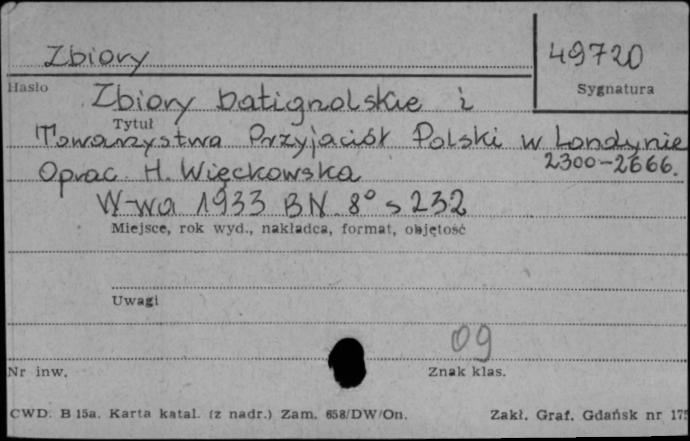 Zbiory
49720
Hasło
Sygnatura
Zbiory batignolskie i
Tytuł
Towarzystwa Przyjaciół Polski w Londynie
2300-2666.
Oprac. H. Więckowska
W-wa 1933 BN. 8° s 232
Miejsce, rok wyd., nakładca, format, objętość
Uwagi
09
Nr inw.
Znak klas.
CWD. B 15a. Karta katal. (z nadr.) Zam. 658/DW/On.
Zakł. Graf. Gdańsk nr 175